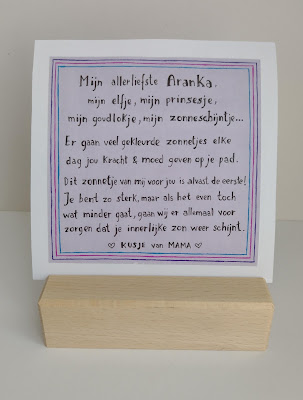 Mijn allerliefste Aranka,
mijn elfje, mijn prinsesje,
mijn goudlokje, mijn zonneschijntje...
Er gaan veel gekleurde zonnetjes elke
dag jou kracht & moed geven op je pad.
Dit zonnetje van mij voor jou is alvast de eerste!
Je bent zo sterk, maar als het even toch
wat minder gaat, gaan wij er allemaal voor
zorgen dat je innerlijke zon weer schijnt.
♡ KUSJE van MAMA ♡